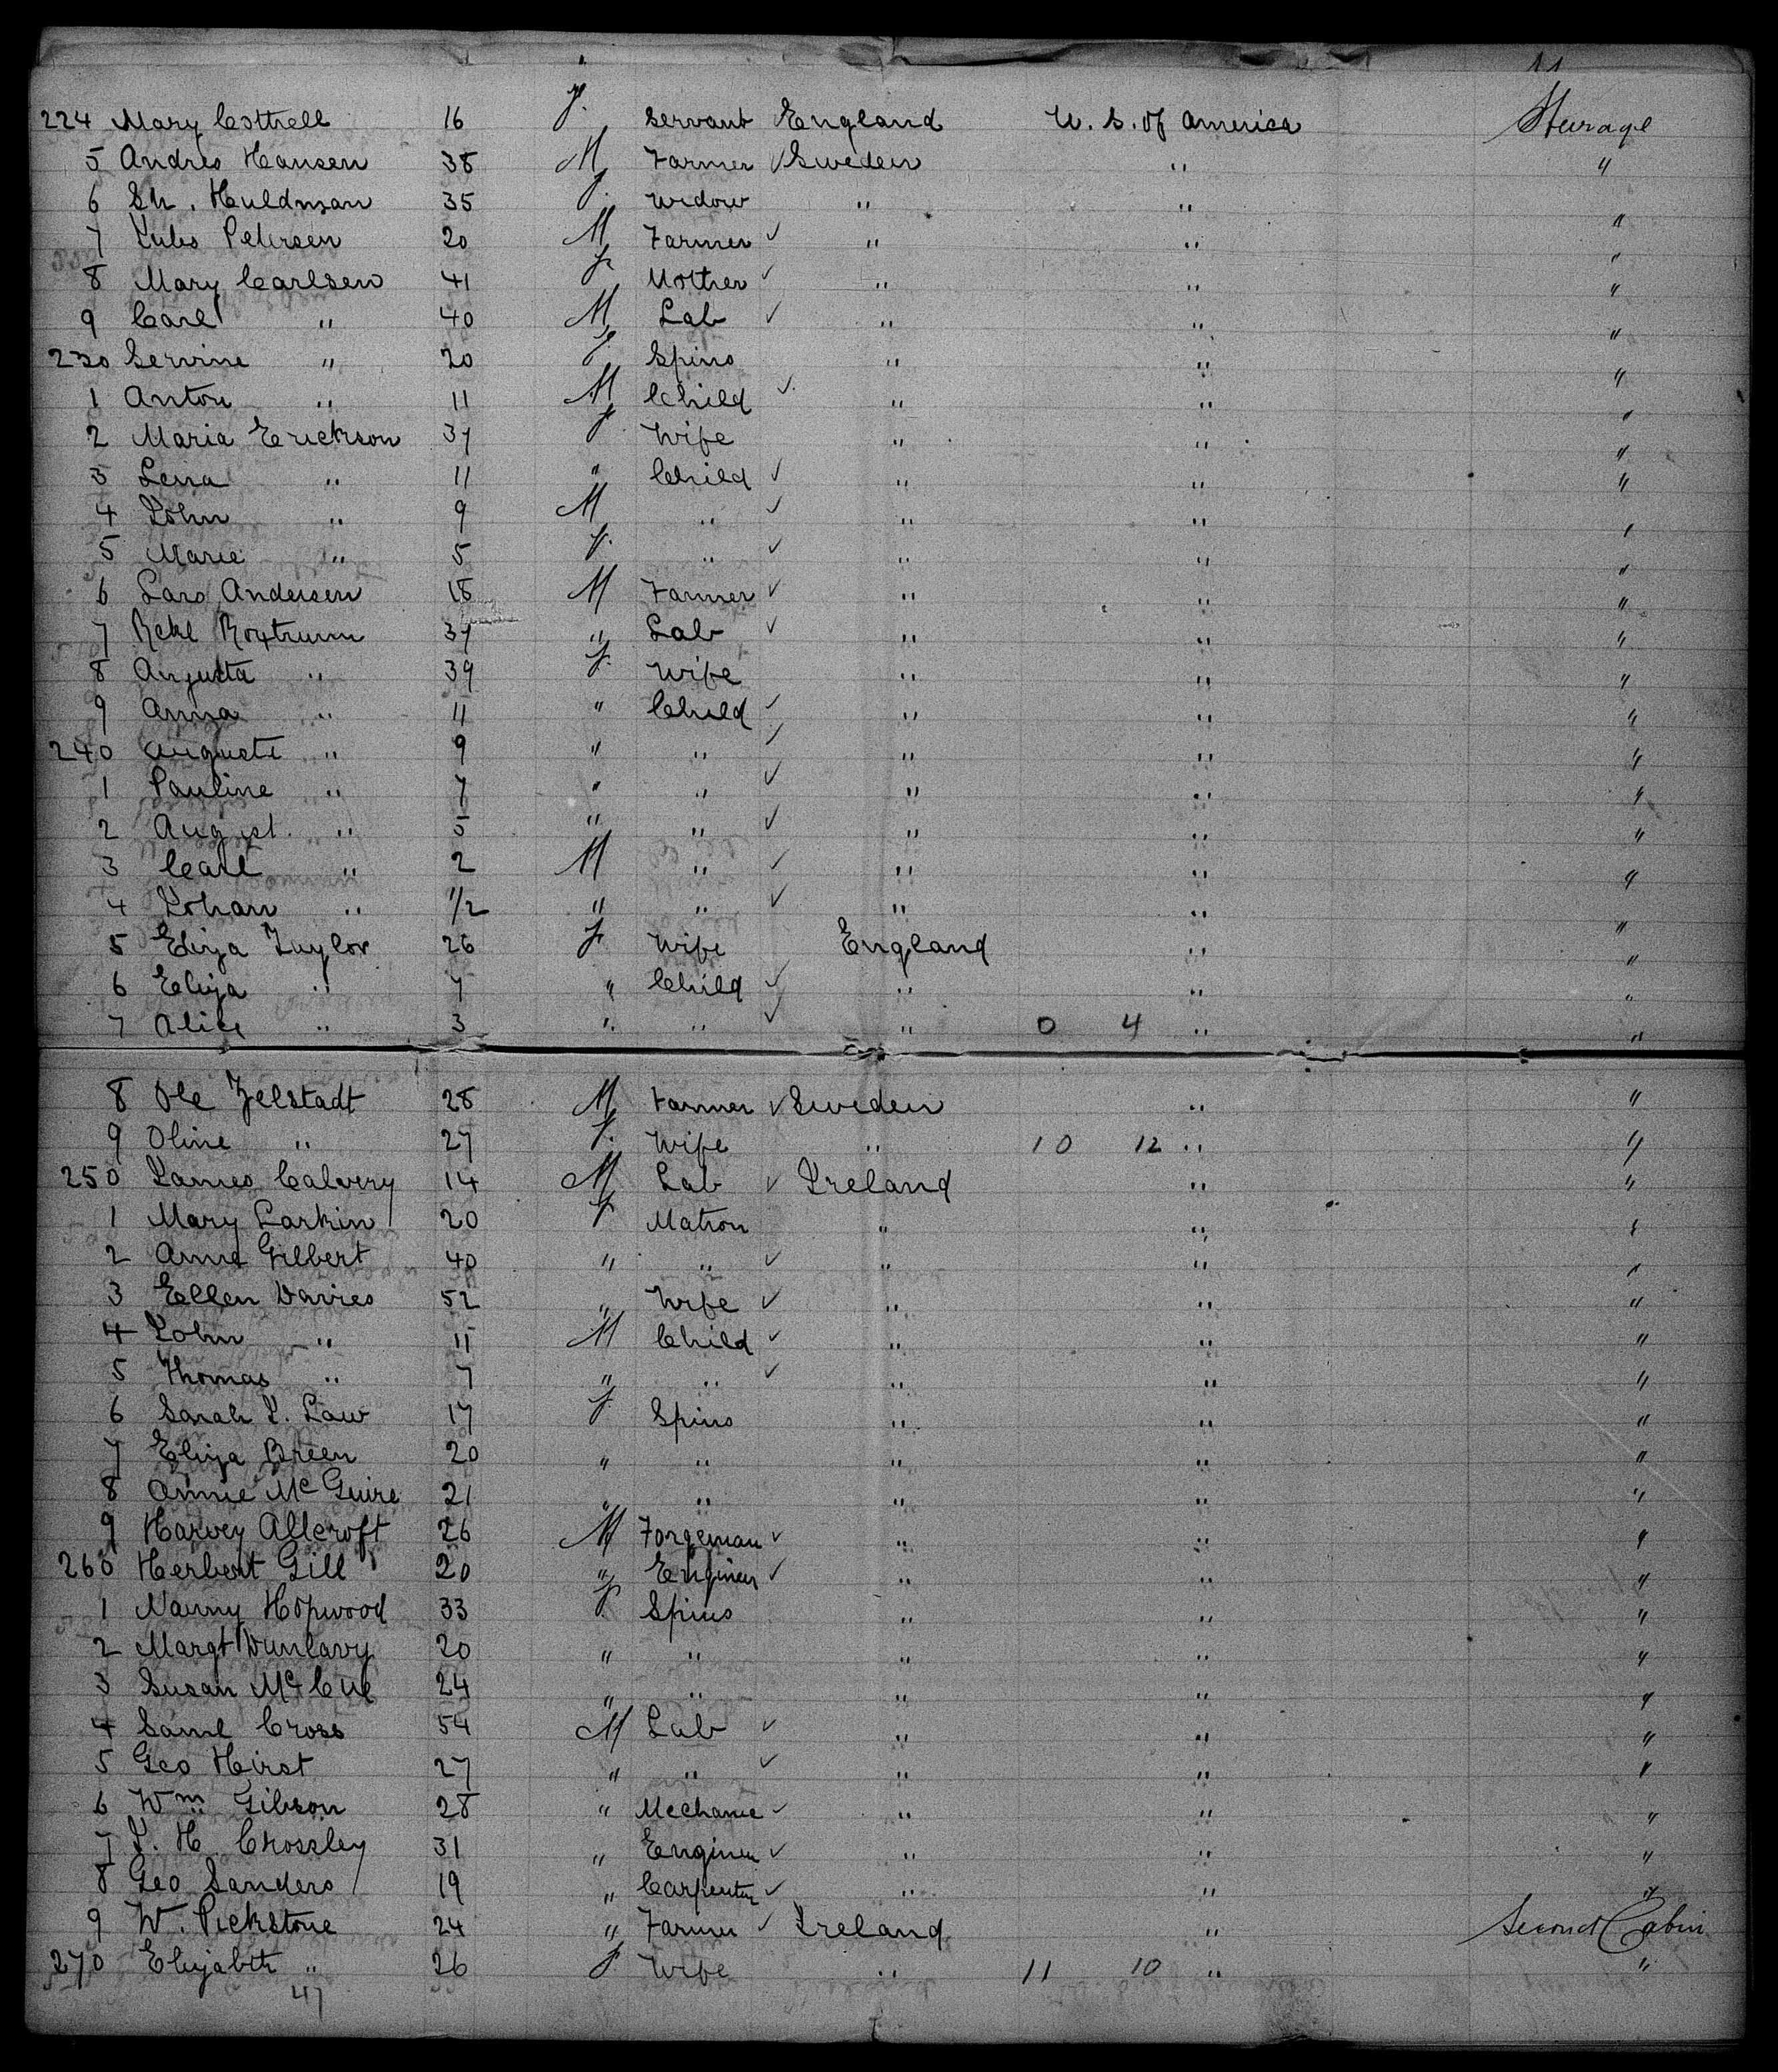 11
224 Mary Cottrell 16 F. Servant England U. S. of America Steerage
5 Andres Hansen 38 M Farmer ✓ Sweden " "
6 Sh. Huldman 35 F. Widow " " "
7 Petersen 20 M Farmer ✓ " " "
8 Mary Carlsen 41 F Mother ✓ " " "
9 Carl " 40 M Lab ✓ " " "
230 Servine " 20 F Spins " " "
1 Anton " 11 M Child ✓ " " "
2 Maria Erickson 37 F. Wife " " "
3 Lena " 11 " Child ✓ " " "
4 John " 9 M " ✓ " " "
5 Marie " 5 F. " ✓ " " "
6 Lars Andersen 18 M Farmer ✓ " " "
7 37 " Lab ✓ " " "
8 Augusta " 39 F. Wife " " "
9 Anna " 11 " Child ✓ " " "
240 Auguste " 9 " " ✓ " " "
1 Pauline " 7 " " ✓ " " "
2 August. " 5 " " ✓ " " "
3 Carl " 2 M " ✓ " " "
4 Johan " 1/2 " " ✓ " " "
5 Eliza Taylor 26 F Wife England " "
6 Eliza " 7 " Child ✓ " " "
7 Alice " 3 " " ✓ " 0 4 " "
8 Ole Zelstadt 28 M Farmer ✓ Sweden " "
9 Oline " 27 F. Wife " 10 12 " "
250 James Calvery 14 M Lab ✓ Ireland " "
1 Mary Larkin 20 F Matron " " "
2 Anne Gilbert 40 " " ✓ " " "
3 Ellen Davies 52 " Wife ✓ " " "
4 John " 11 M Child ✓ " " "
5 Thomas " 7 " " ✓ " " "
6 Sarah J. Law 17 F Spins " " "
7 Eliza Breen 20 " " " " "
8 Annie McGuire 21 " " " " "
9 Harvey Allcroft 26 M Forgeman ✓ " " "
260 Herbert Gill 20 " Engineer ✓ " " "
1 Nanny Hopwood 33 F Spins " " "
2 Margt Dunlavy 20 " " " " "
3 Susan McCue 24 " " " " "
4 Saml Cross 54 M Lab ✓ " " "
5 Geo Hirst 27 " " ✓ " " "
6 Wm Gibson 28 " Mechanic ✓ " " "
7 J. H. Crossley 31 " Engineer ✓ " " "
8 Geo Sanders 19 " Carpenter ✓ " " "
9 W. Pickstone 24 " Farmer ✓ Ireland " Second Cabin
270 Elizabeth " 26 F Wife " 11 10 " "
47